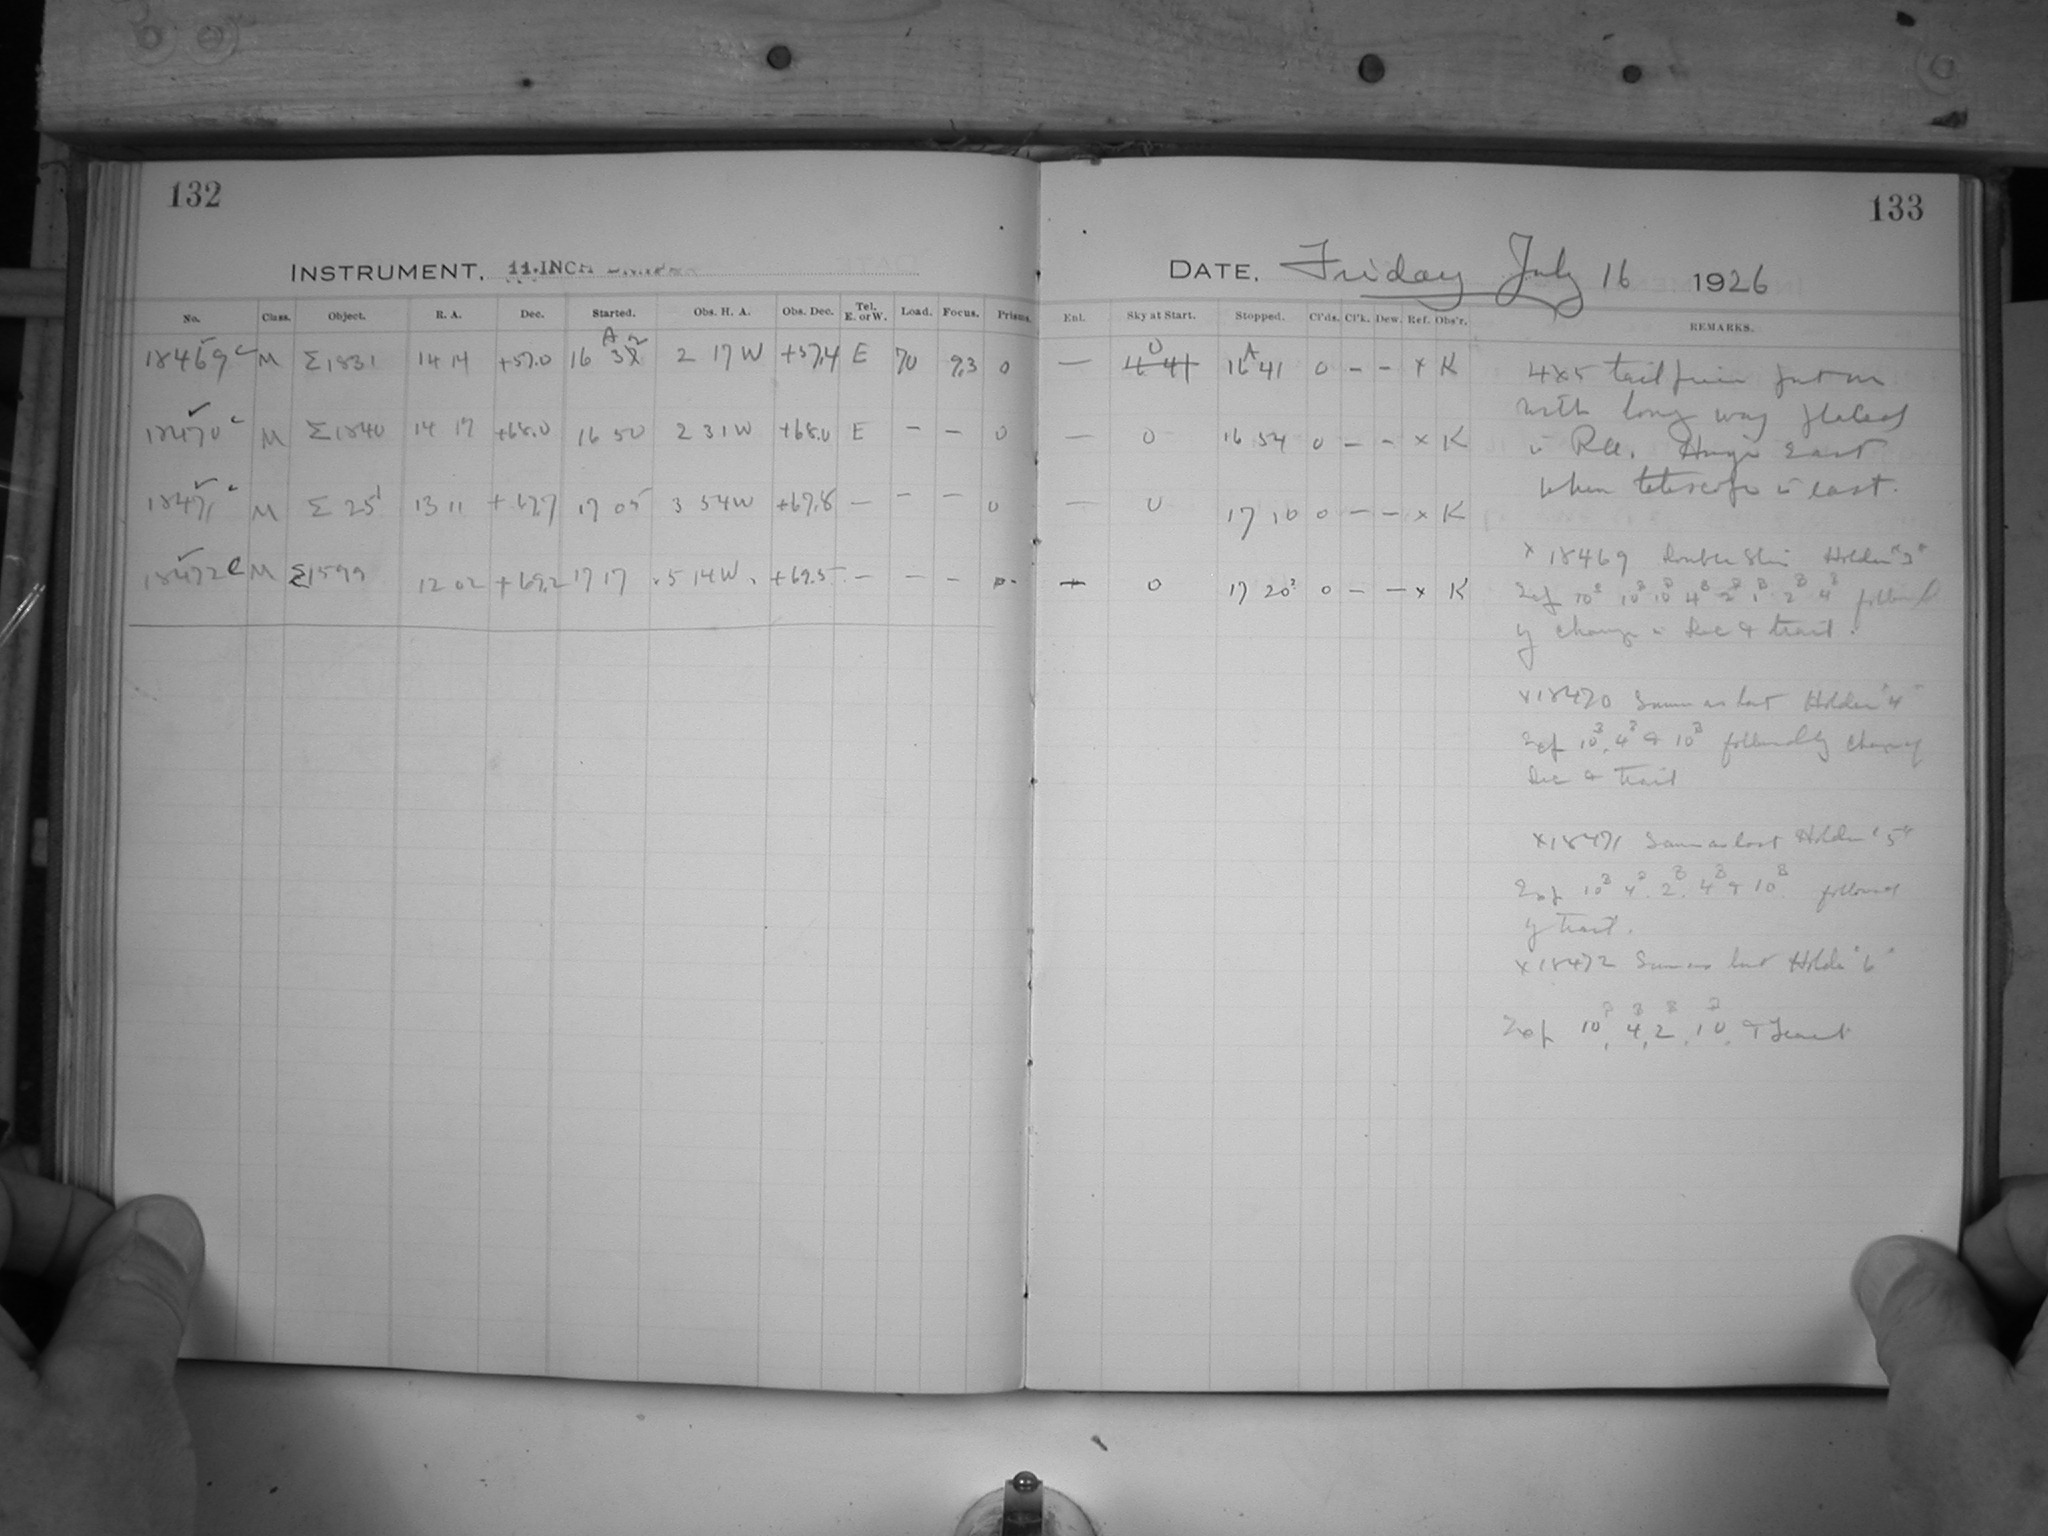 132
INSTRUMENT. 11-INCH
No. Class. Object. R. A. Dec. Started. Obs. H. A. Obs. Dec. Tel. E. or W. Load. Focus. Prisms.
18469 c M Σ1831 14 14 +57.0 16 32 2 17 W +57.4 E 70 9.3 0
18470 c M Σ1840 14 17 +68.0 16 50 2 31 W +68.0 E — — 0
18471 c M Σ 25 13 11 +67.7 17 05 3 54 W +67.8 — — — 0
18472 c M Σ1599 12 02 +69.2 17 17 5 14 W +69.5 — — —
133
DATE. Friday July 16 1926
Enl. Sky at Start. Stopped. Cl'ds. Cl'k. Dew. Ref. Obs'r. REMARKS.
— 0 16 41 0 — — x K
— 0 16 54 0 — — x K
— 0 17 10 0 — — x K
— 0 17 20 0 — — x K
4x5
with long way
in R.A. East
when telescope is east.
x 18469 Double Holder "3"
10 10 10 4 2 1 2 4 followed
by change in Dec & trail.
x 18470 Same as last Holder "4"
10, 4 & 10 followed by change
Dec & trail
x 18471 Same as last Holder "5"
10 4 2 4 & 10 followed
by trail.
x 18472 Same as last Holder "6"
10, 4, 2, 10, &